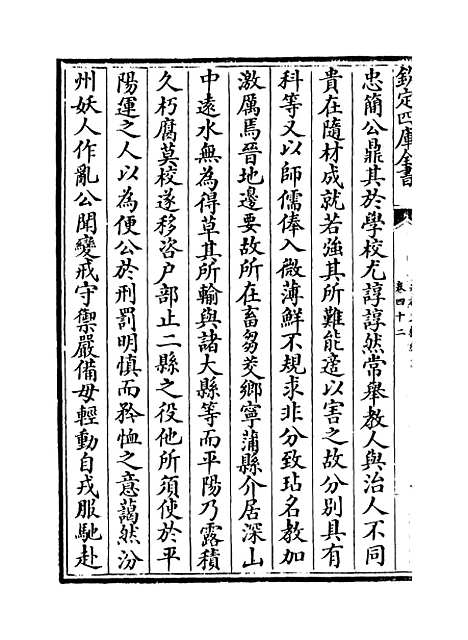 欽定四庫全書
卷四十二
忠簡公鼎其於學校尤諄諄然常舉教人與治人不同
貴在隨材成就若強其所難能適以害之故分別具有
科等又以師儒俸入微薄鮮不規求非分致玷名教加
激厲焉晉地邊要故所在畜芻茭鄉寧蒲縣介居深山
中遠水無為得草其所輸與諸大縣等而平陽乃露積
久朽腐莫校遂移咨户部止二縣之役他所須使於平
陽運之人以為便公於刑罰明慎而矜恤之意藹然汾
州妖人作亂公聞變戒守禦嚴備毋輕動自戎服馳赴